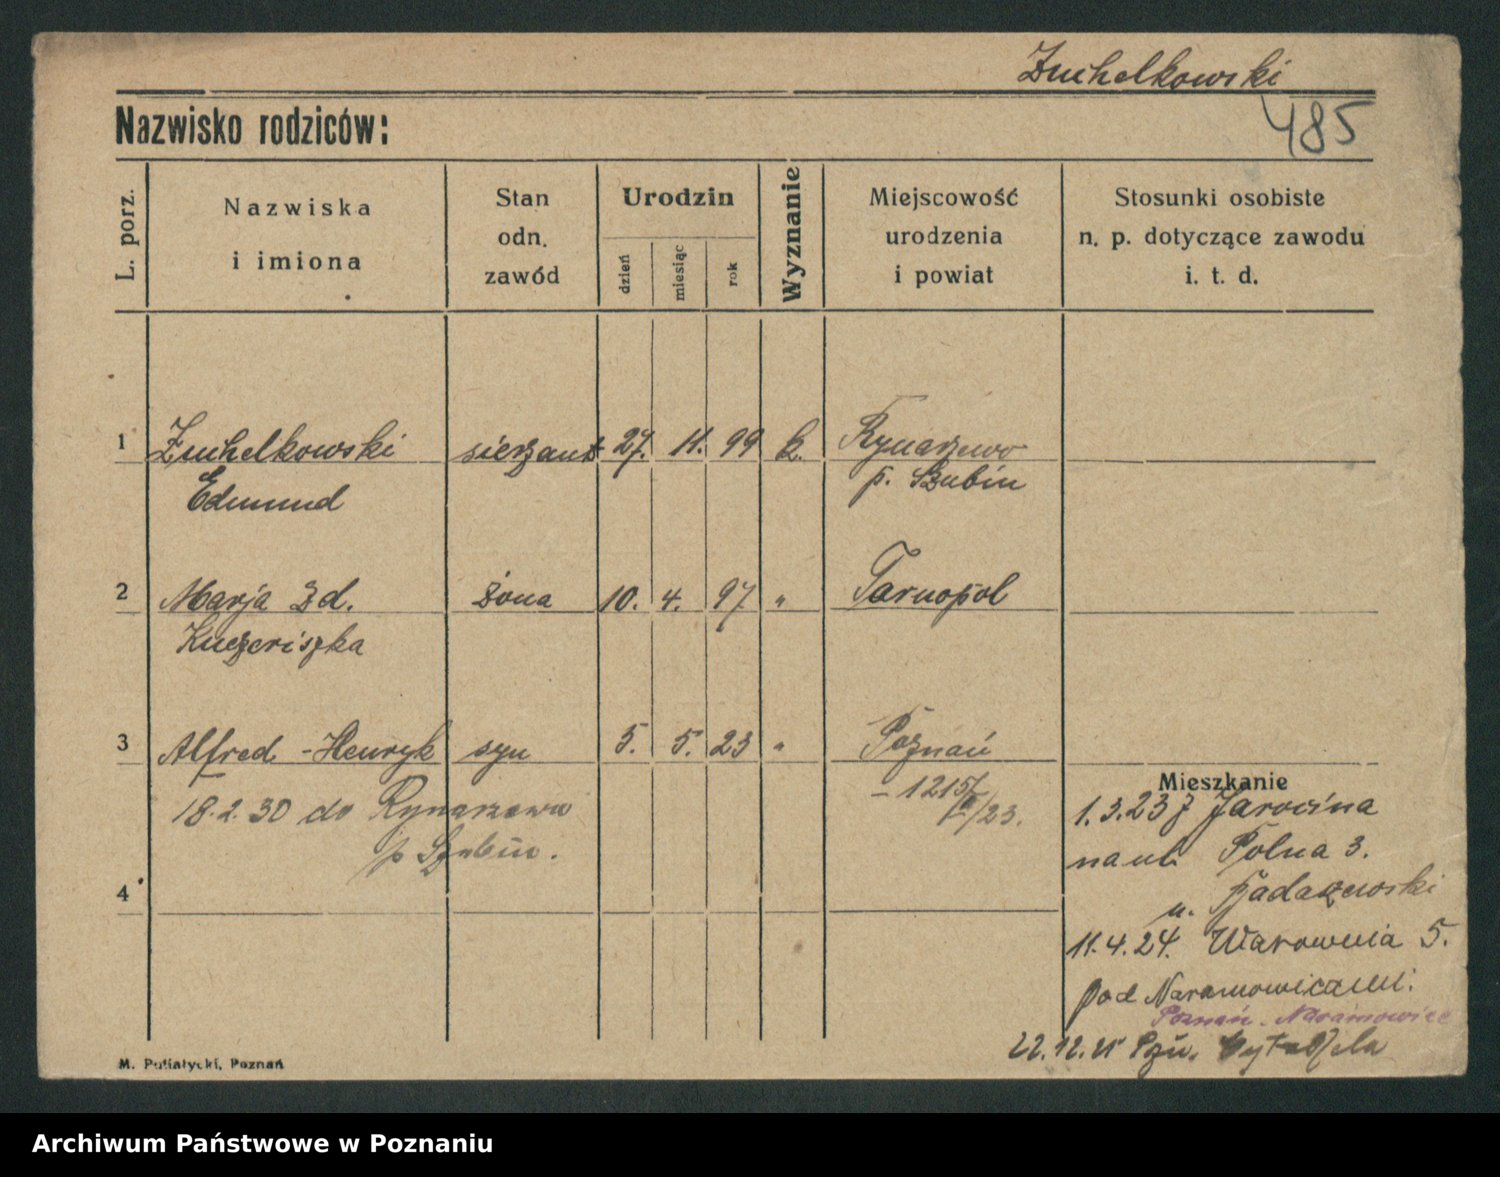 Żuchelkowski
Nazwisko rodziców:
485
L. porz.
Nazwiska
i imiona
Stan
odn.
zawód
Urodzin
dzień
miesiąc
rok
Wyznanie
Miejscowość
urodzenia
i powiat
Stosunki osobiste
n. p. dotyczące zawodu
i. t. d.
1 Żuchelkowski sierżant 27. 11. 99 k. Rynarzewo
Edmund p. Szubin
2 Marja zd. żona 10. 4. 97 " Tarnopol
Kuczeriszka
3 Alfred - Henryk syn 5. 5. 23 " Poznań
18.2.30 do Rynarzewa
p Szubin.
– 1215/
/23.
4
Mieszkanie
1.3.23 z Jarocina
na ul. Polna 3.
u.
11.4.24. Warownia 5.
pod Naramowicami.
Poznań. Naramowice
22.12. Cytadela
M. Putiatycki, Poznań
Archiwum Państwowe w Poznaniu